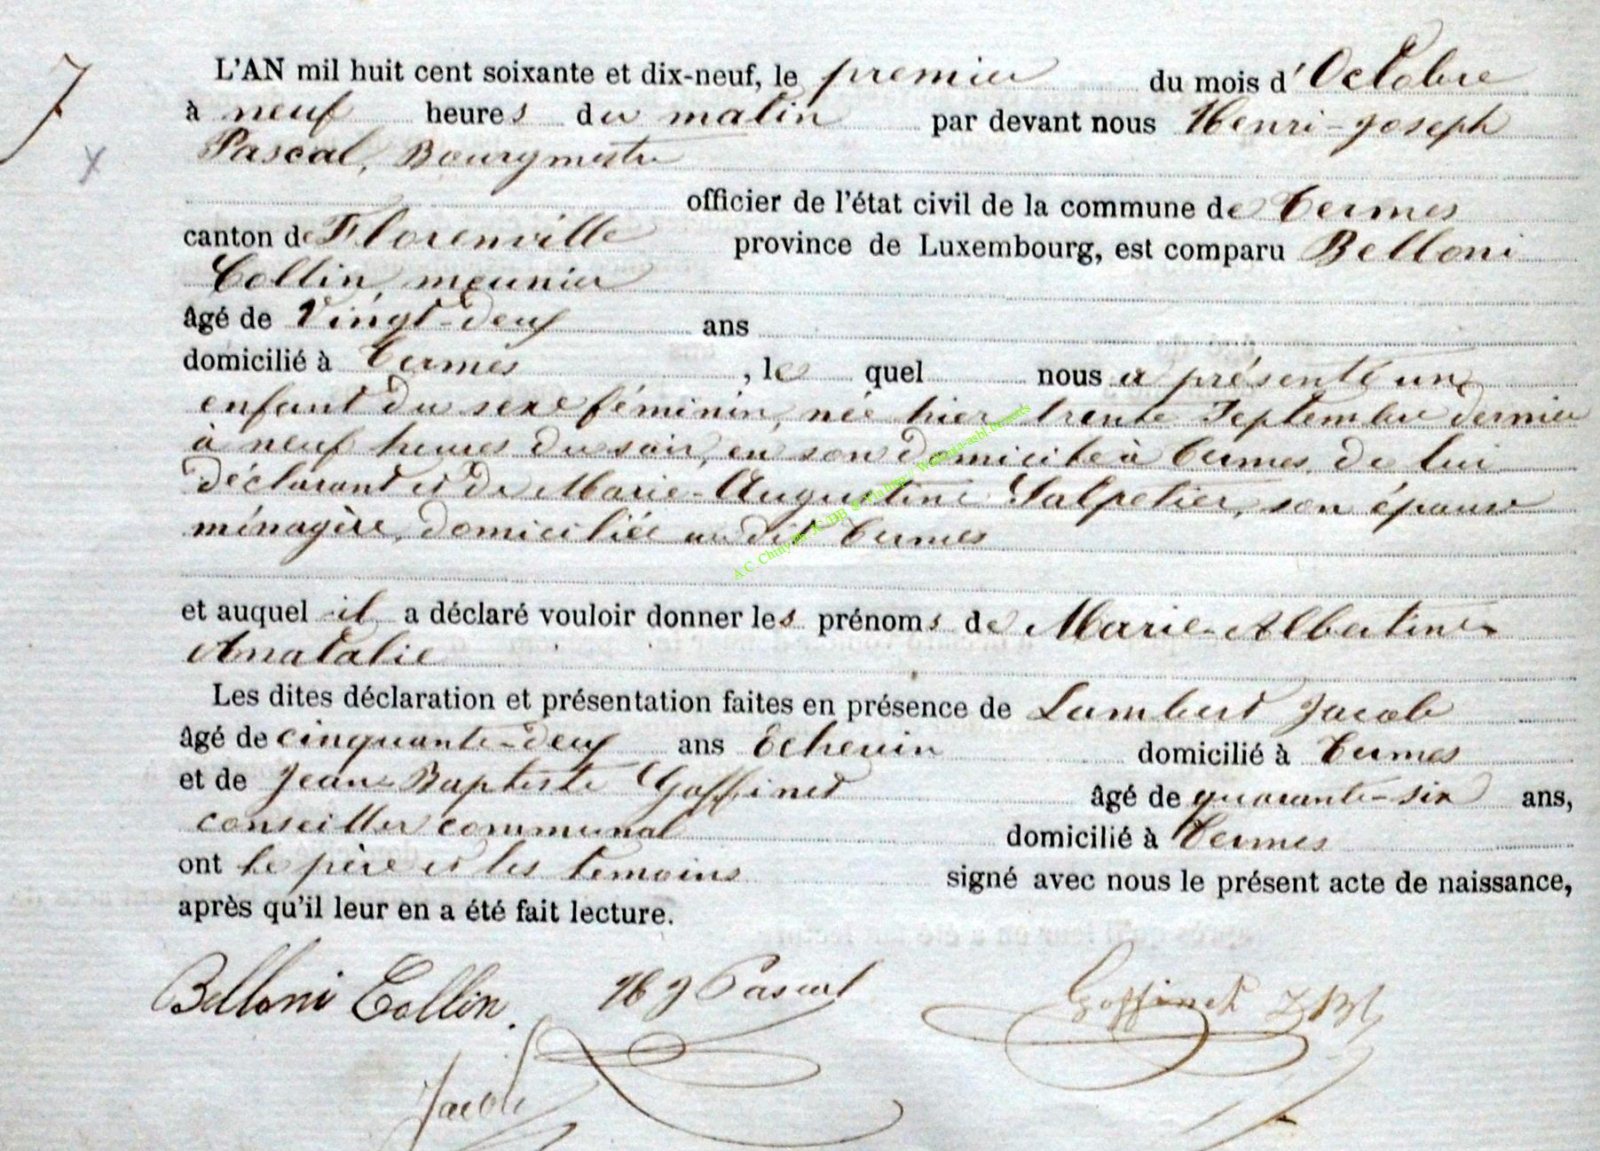 L'AN mil huit cent soixante et dix-neuf, le premier du mois d'Octobre
à neuf heures du matin par devant nous Henri-Joseph
Pascal, Bourgmestre
officier de l'état civil de la commune de Termes
canton de Florenville province de Luxembourg, est comparu Belloni
Collin, meunier
âgé de Vingt-deux ans
domicilié à Termes, lequel nous a présenté un
enfant du sexe féminin, née hier trente Septembre dernier
à neuf heures du soir, en son domicile à Termes, de lui
déclarant et de Marie-Augustine Salpetier, son épouse
ménagère, domiciliée au dit Termes
et auquel il a déclaré vouloir donner les prénoms de Marie-Albertine
Anatalie
Les dites déclaration et présentation faites en présence de Lambert Jacob
âgé de cinquante-deux ans Echevin domicilié à Termes
et de Jean Baptiste Goffinet âgé de quarante-six ans,
conseiller communal domicilié à Termes
ont le père et les temoins signé avec nous le présent acte de naissance,
après qu'il leur en a été fait lecture.
Belloni Collin. H J Pascal Goffinet J Bt
Jacob